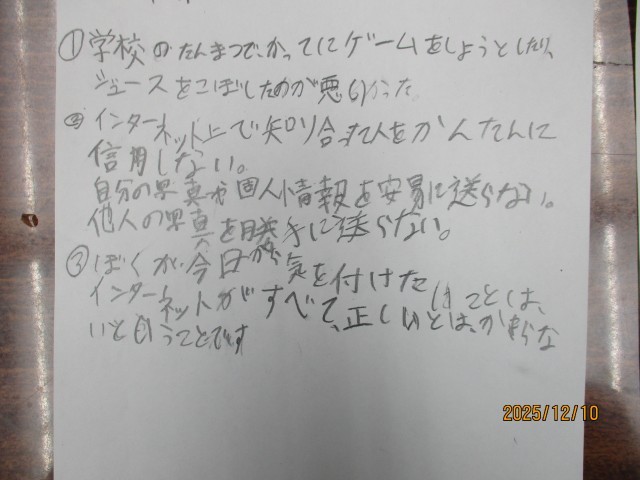 ①学校のたんまつで、かってにゲームをしようとしたり、
ジュースをこぼしたのが悪いかった
②インターネット上で知り合った人をかんたんに
信用しない。
自分の写真や個人情報を安易に送らない。
他人の写真を勝手に送らない。
③ぼくが今日から気を付けたいことは、
インターネットがすべて、正しいとは、か限らな
いと言うことです
2025/12/10